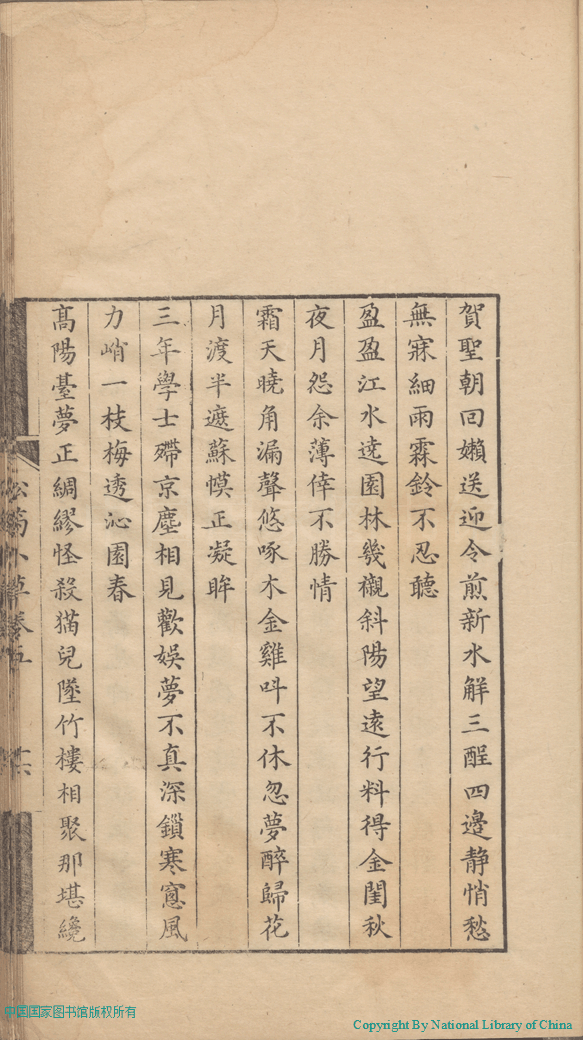 賀聖朝回嬾送迎令煎新水解三酲四邊静悄愁
無寐細雨霖鈴不忍聽
盈盈江水遶園林幾襯斜陽望遠行料得金閨秋
夜月怨余薄倖不勝情
霜天曉角漏聲悠啄木金雞呌不休忽夢醉歸花
月渡半遮蘇幙正凝眸
三年學士殢京塵相見歡娛夢不真深鎖寒窻風
力峭一枝梅透沁園春
髙陽臺夢正綢繆怪殺猫兒墜竹樓相聚那堪纔
中国国家图书馆版权所有
Copyright By National Library of China